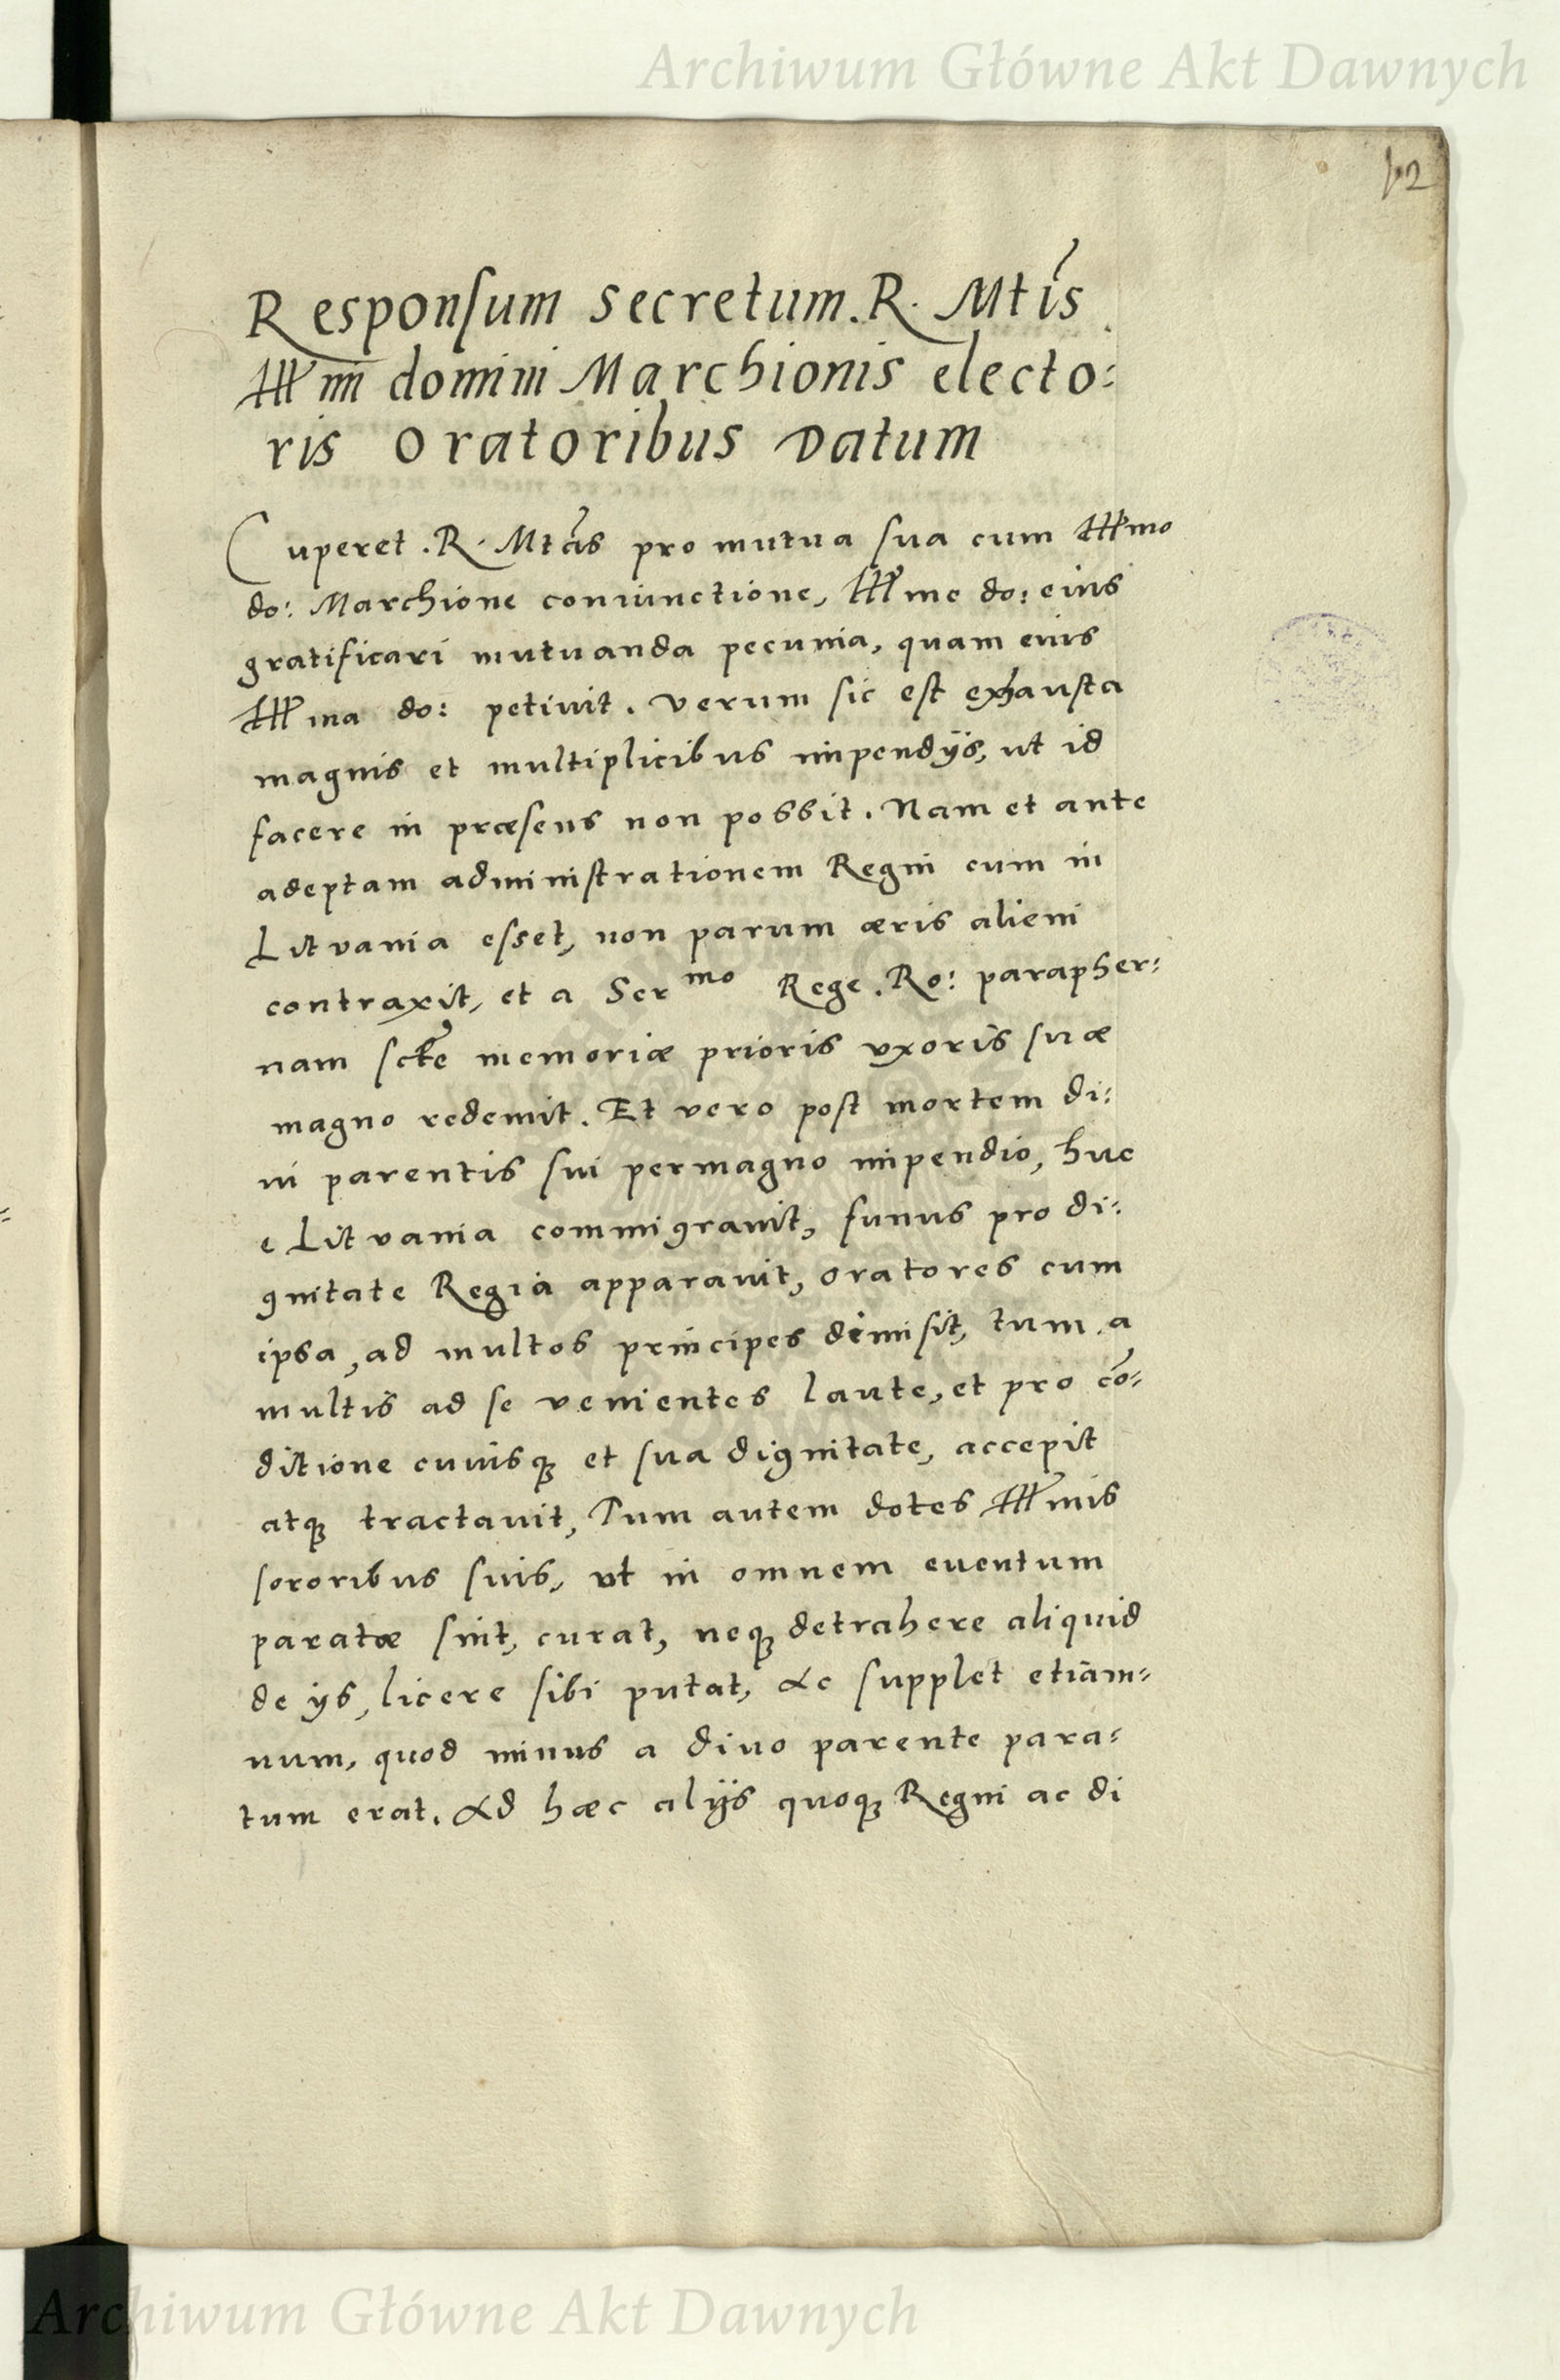 Archiwum Główne Akt Dawnych
Responsum secretum. R. Mtis
Illmi domini Marchionis electo:
ris Oratoribus Datum
Cuperet . R. Mtas pro mutua sua cum Illmo
do: Marchione coniunctione, Illme do: eius
gratificari mutuanda pecunia, quam eius
Illma do: petiuit. verum sic est exhausta
magnis et multiplicibus impendijs, ut id
facere in præsens non possit. Nam et ante
adeptam administrationem Regni cum in
Lituania esset, non parum æris alieni
contraxit, et a Sermo Rege . Ro: parapher:
nam sctæ memoriæ prioris vxoris suæ
magno redemit. Et vero post mortem di:
ui parentis sui permagno impendio, huc
e Lituania commigrauit, funus pro di:
gnitate Regia apparauit, oratores cum
ipsa, ad multos principes dimisit, tum a
multis ad se venientes laute, et pro cō=
ditione cuiusq; et sua dignitate, accepit
atq; tractauit, Tum autem dotes Illmis
sororibus suis, ut in omnem euentum
paratæ sint, curat, neq; detrahere aliquid
de ijs, licere sibi putat, Ac supplet etiam=
num, quod minus a diuo parente para=
tum erat. Ad hæc alijs quoq; Regni ac di
Archiwum Główne Akt Dawnych